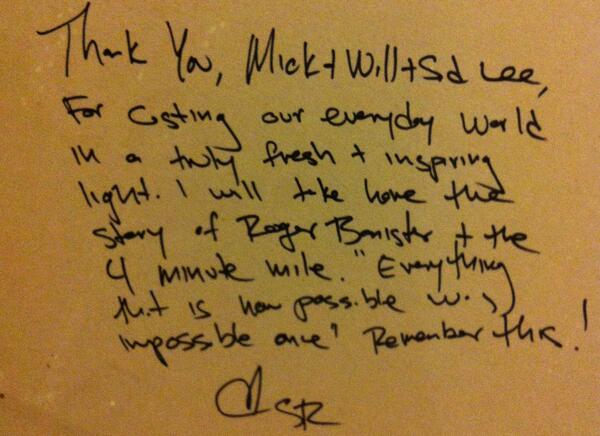 Thank You, Mick + Will + Sid Lee,
For casting our everyday world
in a truly fresh + inspiring
light. I will take home the
story of Roger Banister + the
4 minute mile. "Everything
that is now possible was
impossible once" Remember this!
SR